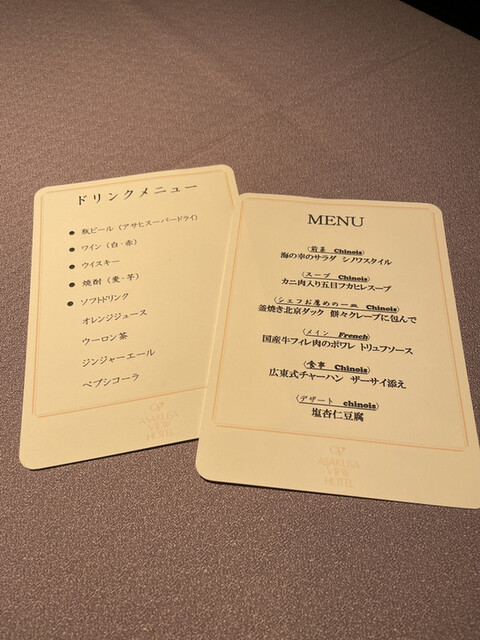 ドリンクメニュー
● 瓶ビール（アサヒスーパードライ）
● ワイン（白・赤）
● ウイスキー
● 焼酎（麦・芋）
● ソフトドリンク
オレンジジュース
ウーロン茶
ジンジャーエール
ペプシコーラ
ASAKUSA
VIEW
HOTEL
MENU
（前菜 Chinois）
海の幸のサラダ シノワスタイル
（スープ Chinois）
カニ肉入り五目フカヒレスープ
（シェフお薦めの一皿 Chinois）
釜焼き北京ダック 餅々クレープに包んで
（メイン French）
国産牛フィレ肉のポワレ トリュフソース
（食事 Chinois）
広東式チャーハン ザーサイ添え
（デザート chinois）
塩杏仁豆腐
ASAKUSA
VIEW
HOTEL